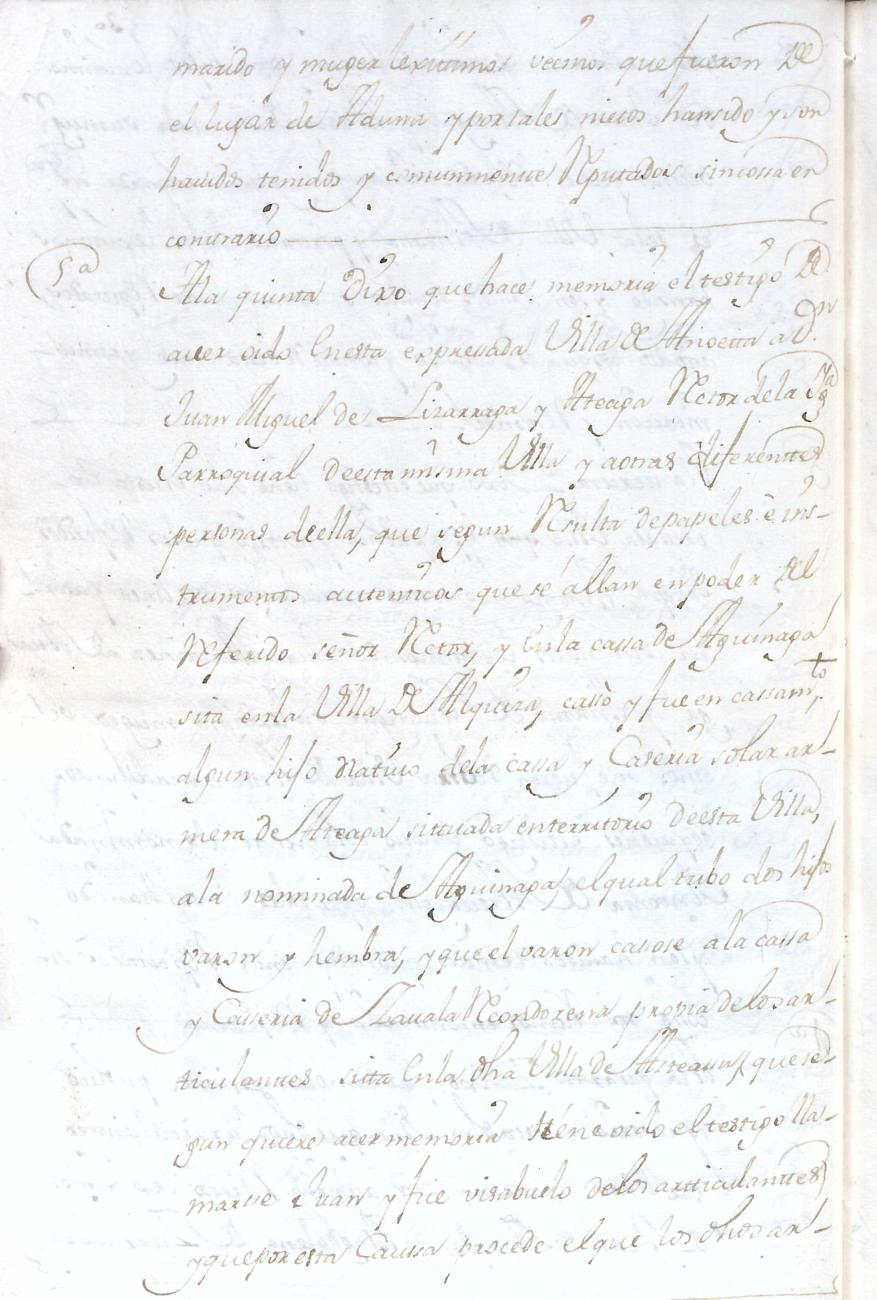 marido y muger lexittimos vecinos que fueron de
el lugar de Aduna y por tales nietos han sido y son
hauidos tenidos y comunmente Reputados sin cossa en
contrario
5ª
A la quinta dixo que hace memoria el testigo de
auer oido en esta expressada Villa de Anoetta a Dn
Juan Miguel de Lizarraga y Atteaga Rector de la Yga
Parroquial de esta misma Villa y a otras diferenttes
personas de ella, que segun Resulta de papeles e ins-
trumentos autenticos que se allan en poder del
Referido señor Rector, y en la cassa de Aguinaga
sita en la Villa de Alquiza, cassò y fue en cassamto
algun hijo Natiuo de la cassa y Caseria solar ar-
mera de Atteaga sittuada en territorio de esta Villa,
a la nominada de Aguinaga, el qual tubo dos hijos
varon y hembra, y que el varon casose a la cassa
y Casseria de propia de los ar-
ticulanttes sitta en la dha Villa de que se-
gun quiere acer memoria tiene oido el testigo lla-
marse Juan y fue visabuelo de los artticulanttes
y que por esta Caussa procede el que los dhos ar-